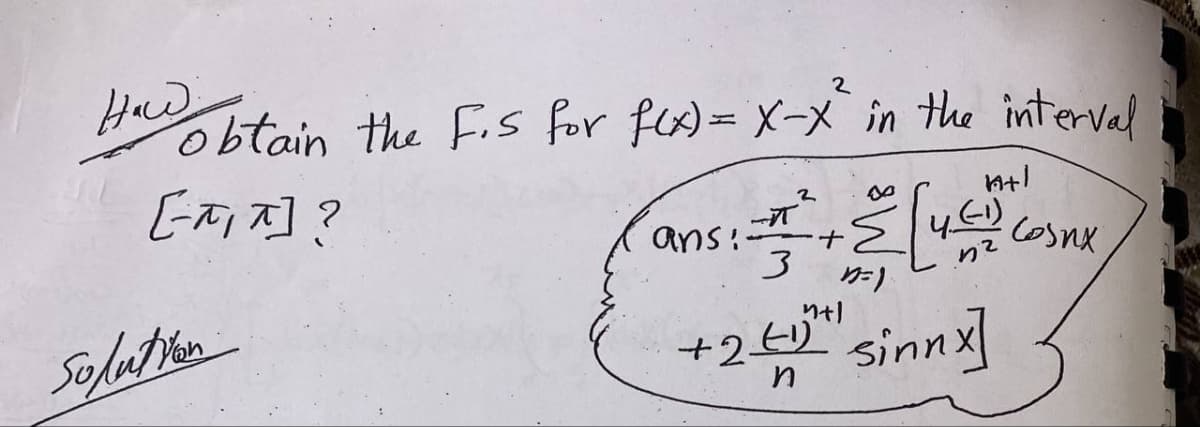 H.W
obtain the F.S for f(x) = x-x² in the interval
[-π, π] ?
ans: -π²/3 + Σ_{n=1}^{∞} [4 (-1)^{n+1}/n² cosnx
+2 (-1)^{n+1}/n sinnx]
Solution